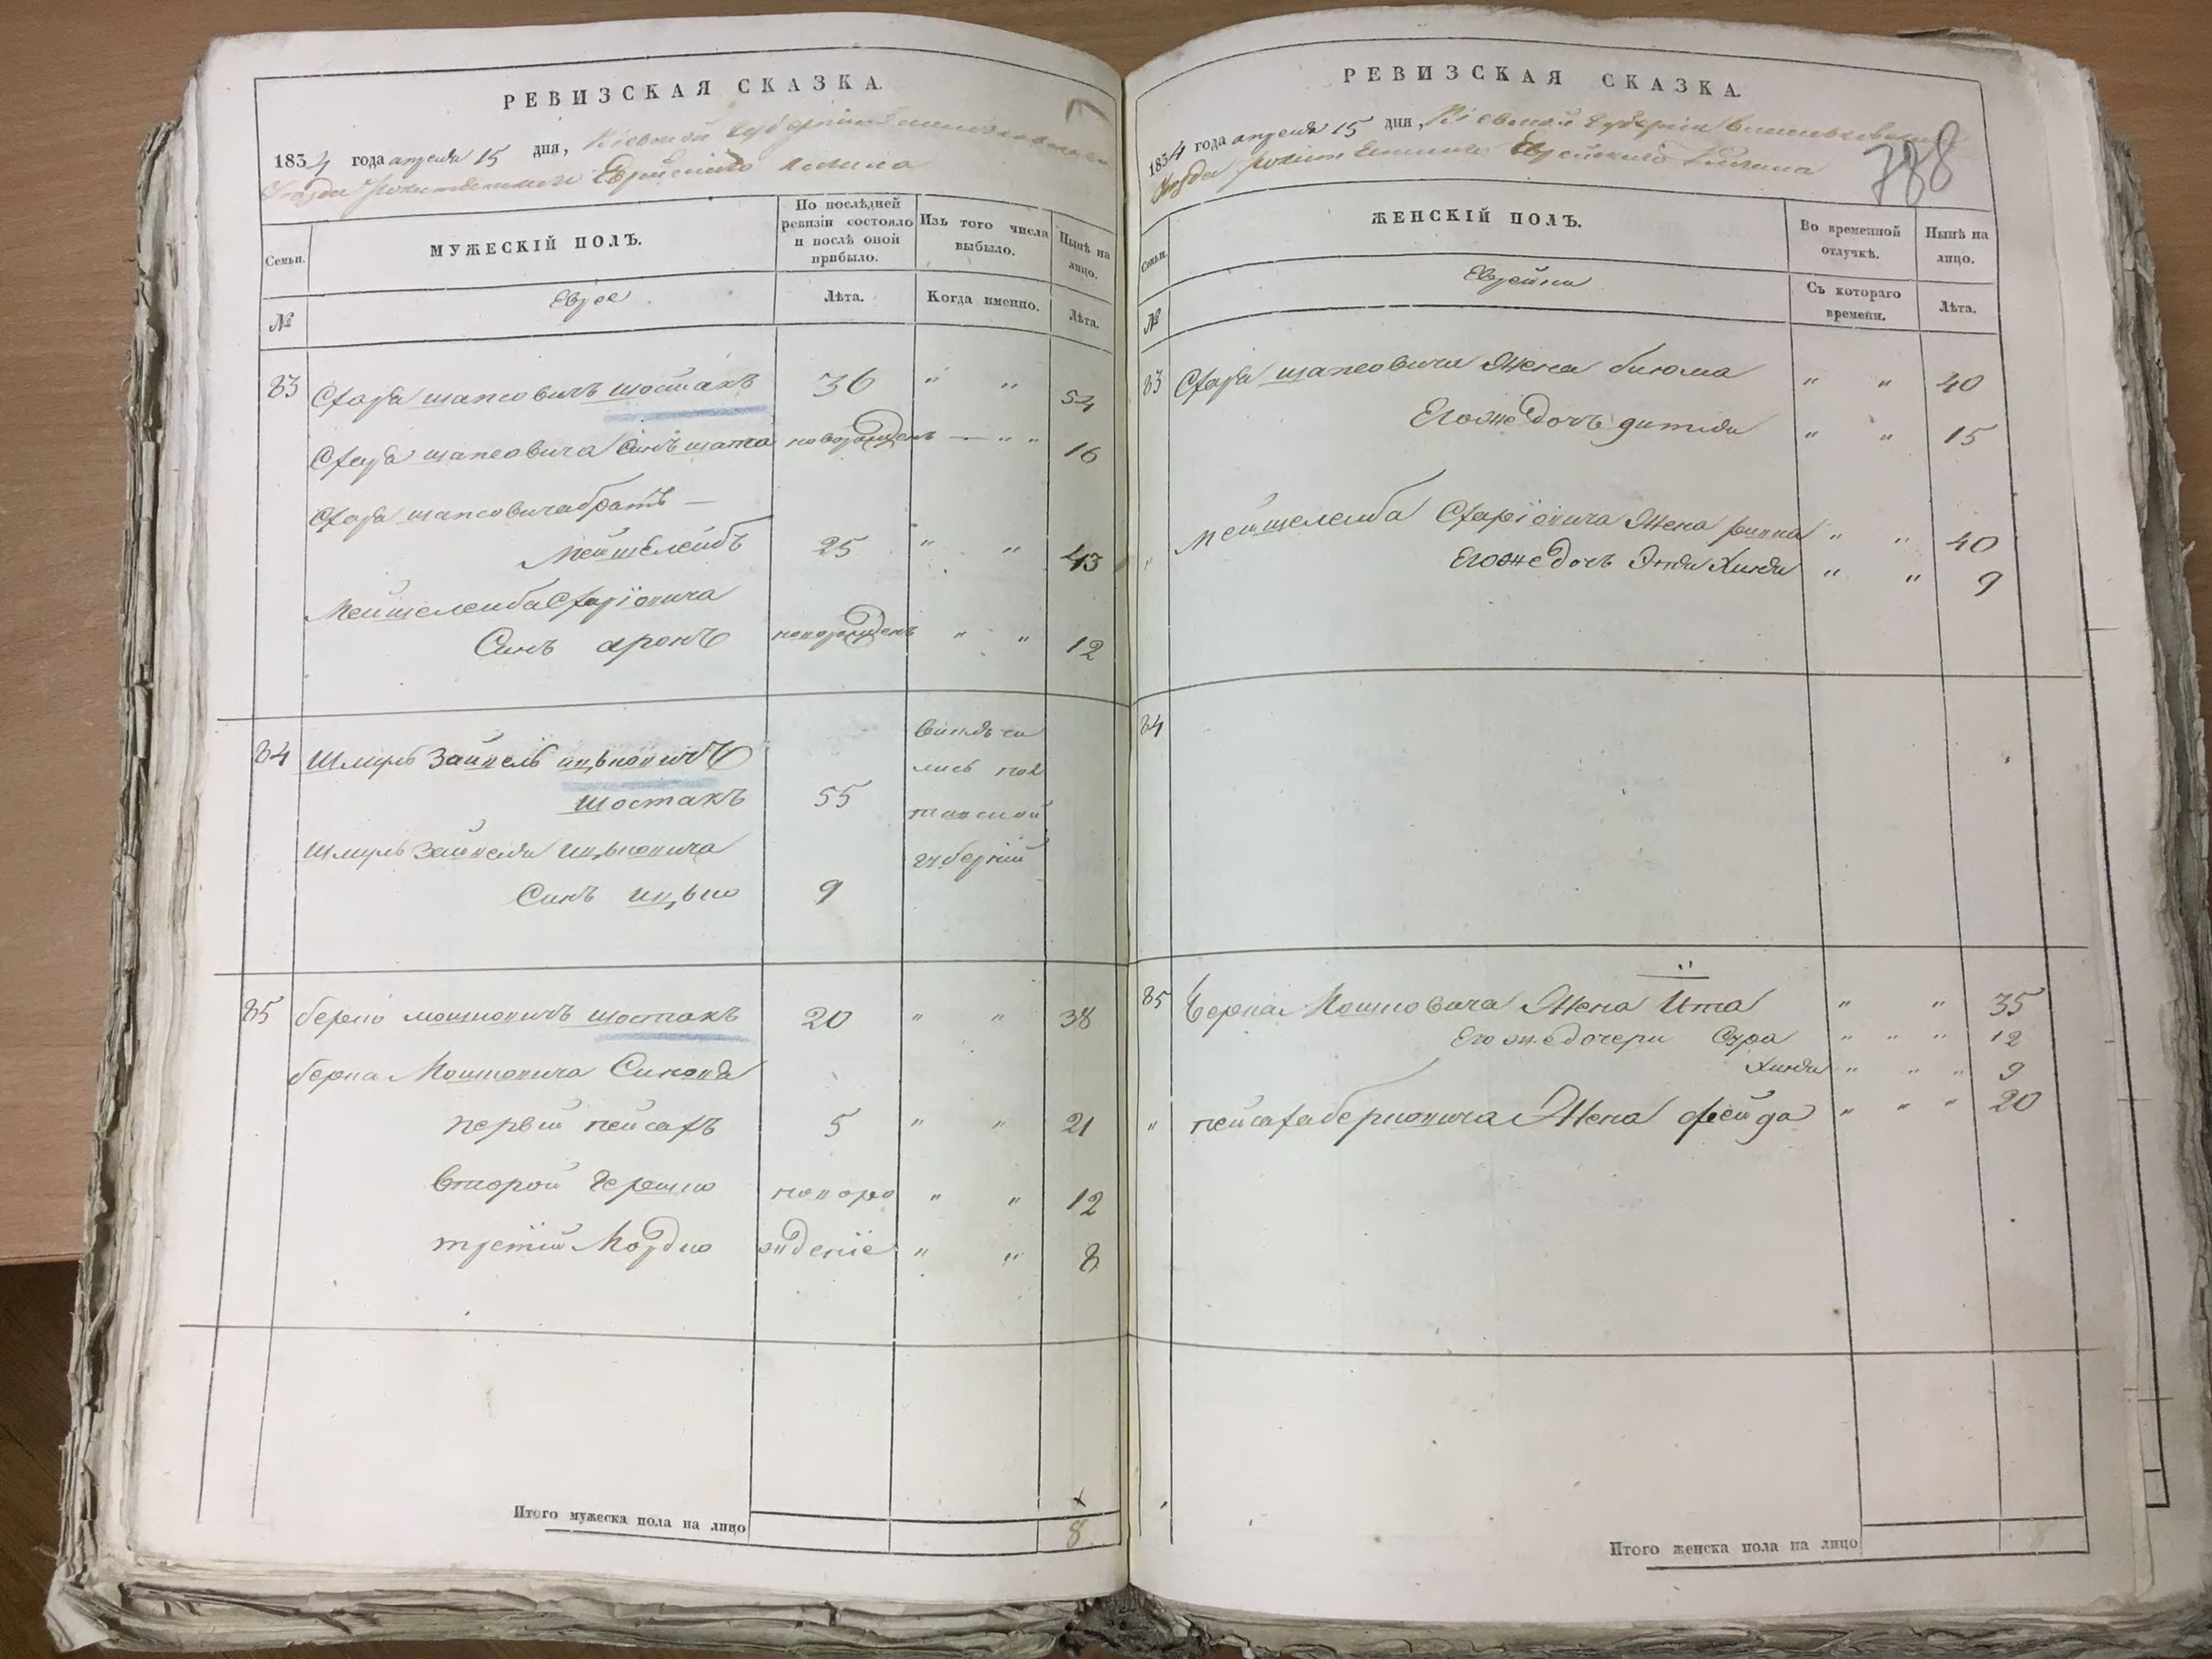 РЕВИЗСКАЯ СКАЗКА.
1834 года апреля 15 дня, Кіевской Губерніи
Уѣзда Еврейского
Семьи.
МУЖЕСКІЙ ПОЛЪ.
По послѣдней ревизіи состояло и послѣ оной прибыло.
Изъ того числа выбыло.
Нынѣ на лицо.
№
Евреи
Лѣта.
Когда именно.
Лѣта.
83 шапсовичъ шостакъ 36 " " 54
шапсовича Синъ новорожденъ — " " 16
шапсовича братъ —
Мейшелейбъ 25 " " 43
Мейшелейба
Синъ аронъ новорожденъ " " 12
84 Шмуль Зайвель ицьковичъ
шостакъ 55
Шмуль Зайвеля ицьковича
Синъ ицько 9
губерній
85 берко мошковичъ шостакъ 20 " " 38
берка Мошковича Синовя
первій пейсахъ 5 " " 21
второй Гершко новоро " " 12
третій Мордко жденіе " " 8
Итого мужеска пола на лицо 8
РЕВИЗСКАЯ СКАЗКА.
1834 года апреля 15 дня, Кіевской Губерніи
Уѣзда Еврейского
788
Семьи.
ЖЕНСКІЙ ПОЛЪ.
Во временной отлучкѣ.
Нынѣ на лицо.
№
Еврейки
Съ котораго времени.
Лѣта.
83 шапсовича Жена блюма " " 40
Егоже дочь " " 15
" Мейшелейба Жена ривка " " 40
Егоже дочь Хинда " " 9
84
85 Берка Мошковича Жена Ита " " 35
Егоже дочери Сура " " " 12
Хинда " " " 9
" пейсаха берковича Жена фейда " " " 20
Итого женска пола на лицо